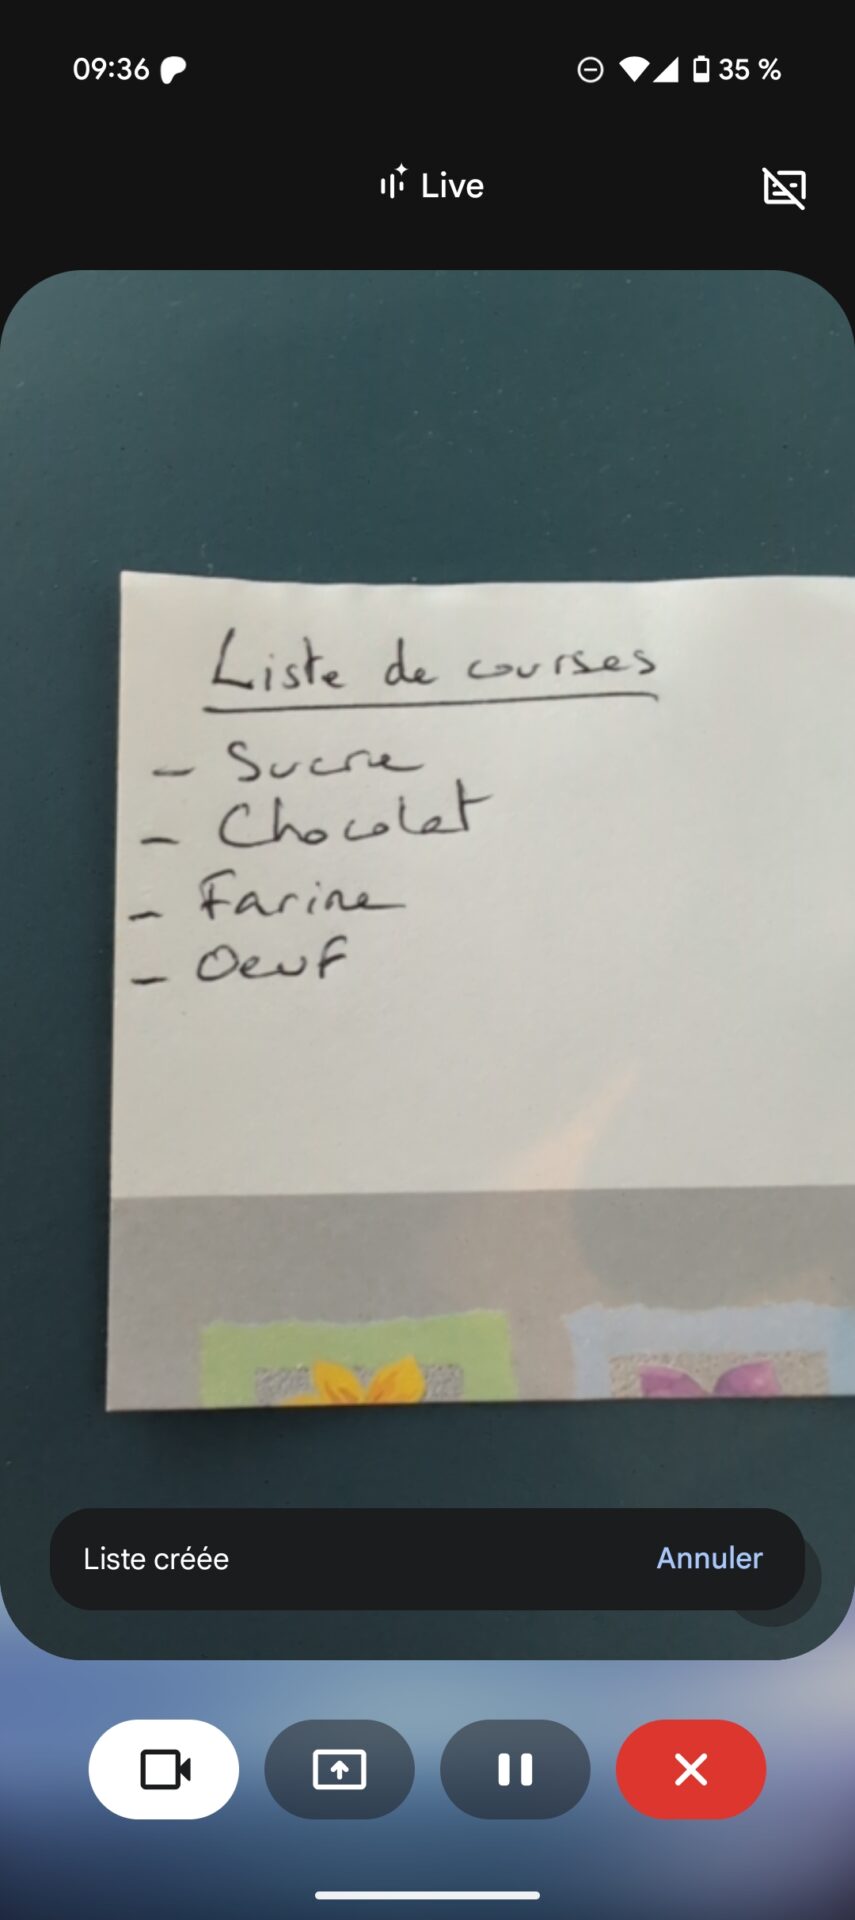 09:36
35 %
Live
Liste de courses
- Sucre
- Chocolat
- Farine
- Oeuf
Liste créée
Annuler